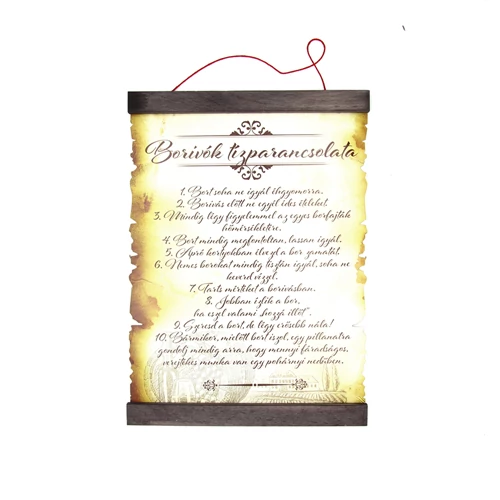 Borivók tízparancsolata
1. Bort soha ne igyál éhgyomorra.
2. Borivás előtt ne egyél édes ételeket.
3. Mindig légy figyelemmel az egyes borfajták
hőmérsékletére.
4. Bort mindig megfontoltan, lassan igyál.
5. Apró kortyokban élvezd a bor zamatát.
6. Nemes borokat mindig tisztán igyál, soha ne
keverd vízzel.
7. Tarts mértéket a borivásban.
8. Jobban ízlik a bor,
ha eszel valami „hozzá illőt".
9. Szeresd a bort, de légy erősebb nála!
10. Bármikor, mielőtt bort iszol, egy pillanatra
gondolj mindig arra, hogy mennyi fáradságos,
verejtékes munka van egy pohárnyi nedűben.